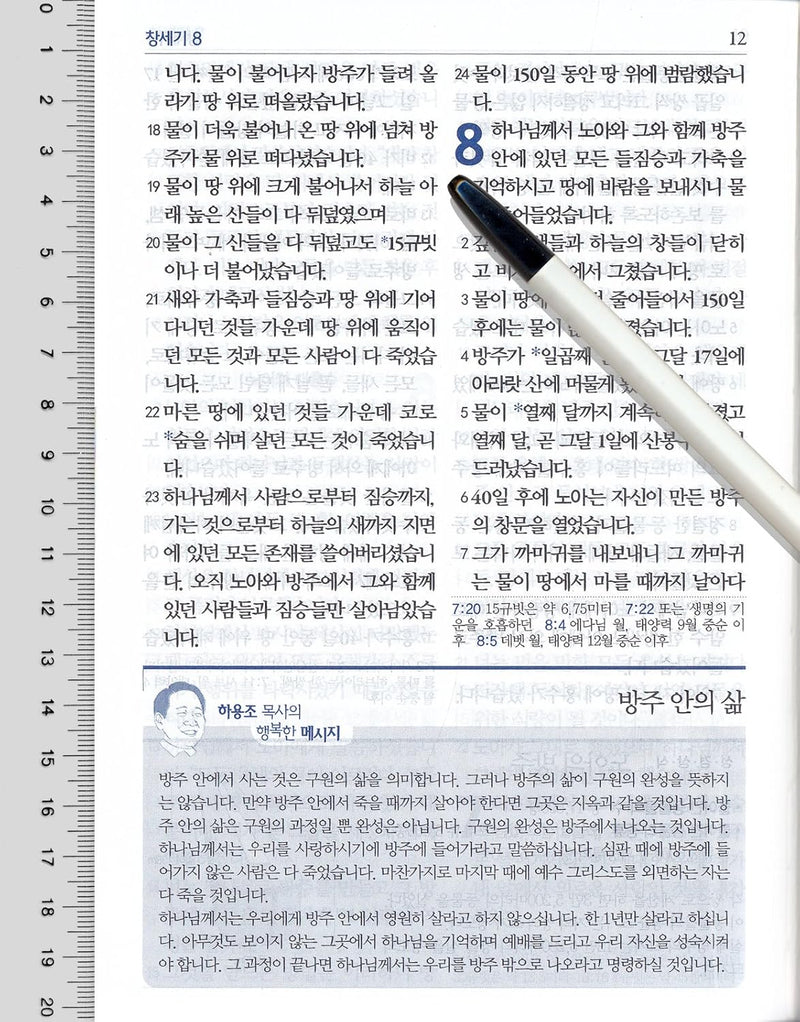 창세기 8
12
니다. 물이 불어나자 방주가 들려 올
라가 땅 위로 떠올랐습니다.
18 물이 더욱 불어나 온 땅 위에 넘쳐 방
주가 물 위로 떠다녔습니다.
19 물이 땅 위에 크게 불어나서 하늘 아
래 높은 산들이 다 뒤덮였으며
20 물이 그 산들을 다 뒤덮고도 *15규빗
이나 더 불어났습니다.
21 새와 가축과 들짐승과 땅 위에 기어
다니던 것들 가운데 땅 위에 움직이
던 모든 것과 모든 사람이 다 죽었습
니다.
22 마른 땅에 있던 것들 가운데 코로
*숨을 쉬며 살던 모든 것이 죽었습니
다.
23 하나님께서 사람으로부터 짐승까지,
기는 것으로부터 하늘의 새까지 지면
에 있던 모든 존재를 쓸어버리셨습니
다. 오직 노아와 방주에서 그와 함께
있던 사람들과 짐승들만 살아남았습
니다.
24 물이 150일 동안 땅 위에 범람했습니
다.
8 하나님께서 노아와 그와 함께 방주
안에 있던 모든 들짐승과 가축을
기억하시고 땅에 바람을 보내시니 물
어들었습니다.
2 하늘의 창들이 닫히
고 에서 그쳤습니다.
3 물이 줄어들어서 150일
후에는 물이
4 방주가 *일곱째 그달 17일에
아라랏 산에 머물게
5 물이 *열째 달까지 졌고
열째 달, 곧 그달 1일에
드러났습니다.
6 40일 후에 노아는 자신이 만든 방주
의 창문을 열었습니다.
7 그가 까마귀를 내보내니 그 까마귀
는 물이 땅에서 마를 때까지 날아다
7:20 15규빗은 약 6.75미터 7:22 또는 생명의 기
운을 호흡하던 8:4 에다님 월, 태양력 9월 중순 이
후 8:5 데벳 월, 태양력 12월 중순 이후
하용조 목사의
행복한 메시지
방주 안의 삶
방주 안에서 사는 것은 구원의 삶을 의미합니다. 그러나 방주의 삶이 구원의 완성을 뜻하지
는 않습니다. 만약 방주 안에서 죽을 때까지 살아야 한다면 그곳은 지옥과 같을 것입니다. 방
주 안의 삶은 구원의 과정일 뿐 완성은 아닙니다. 구원의 완성은 방주에서 나오는 것입니다.
하나님께서는 우리를 사랑하시기에 방주에 들어가라고 말씀하십니다. 심판 때에 방주에 들
어가지 않은 사람은 다 죽었습니다. 마찬가지로 마지막 때에 예수 그리스도를 외면하는 자는
다 죽을 것입니다.
하나님께서는 우리에게 방주 안에서 영원히 살라고 하지 않으십니다. 한 1년만 살라고 하십니
다. 아무것도 보이지 않는 그곳에서 하나님을 기억하며 예배를 드리고 우리 자신을 성숙시켜
야 합니다. 그 과정이 끝나면 하나님께서는 우리를 방주 밖으로 나오라고 명령하실 것입니다.
0
1
2
3
4
5
6
7
8
9
10
11
12
13
14
15
16
17
18
19
20